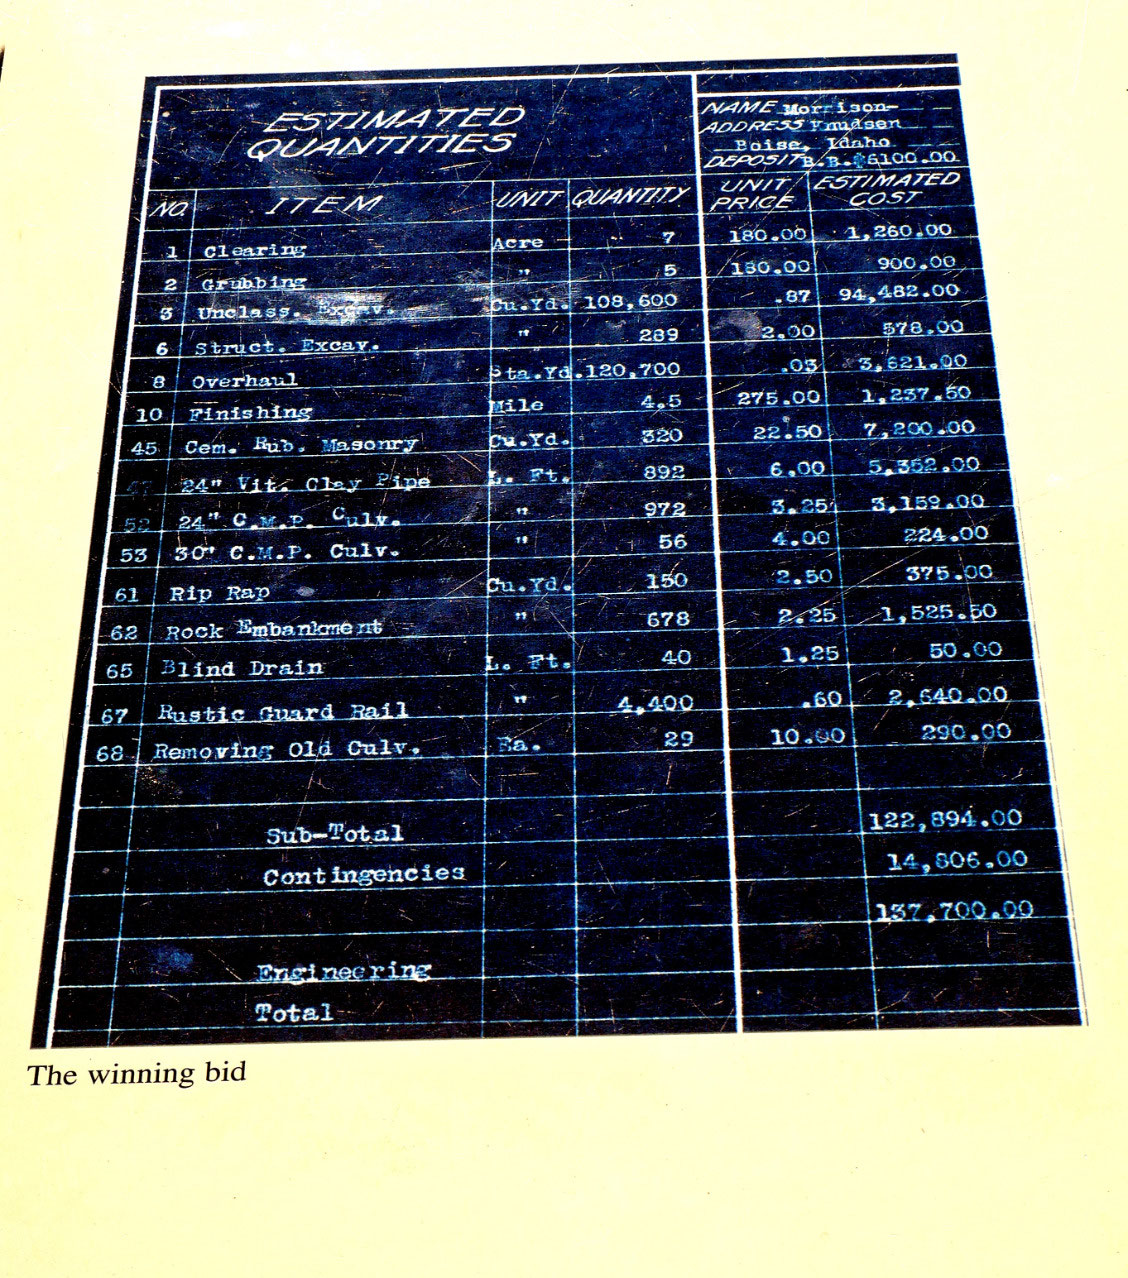 ESTIMATED
QUANTITIES
NAME Morrison-
ADDRESS Knudsen
Boise, Idaho
DEPOSIT B.B. $6100.00
NO. ITEM UNIT QUANTITY UNIT PRICE ESTIMATED COST
1 Clearing Acre 7 180.00 1,260.00
2 Grubbing " 5 180.00 900.00
3 Unclass. Excav. Cu.Yd. 108,600 .87 94,482.00
6 Struct. Excav. " 289 2.00 578.00
8 Overhaul Sta.Yd. 120,700 .03 3,621.00
10 Finishing Mile 4.5 275.00 1,237.50
45 Cem. Rub. Masonry Cu.Yd. 320 22.50 7,200.00
47 24" Vit. Clay Pipe L. Ft. 892 6.00 5,352.00
52 24" C.M.P. Culv. " 972 3.25 3,159.00
53 30" C.M.P. Culv. " 56 4.00 224.00
61 Rip Rap Cu.Yd. 150 2.50 375.00
62 Rock Embankment " 678 2.25 1,525.50
65 Blind Drain L. Ft. 40 1.25 50.00
67 Rustic Guard Rail " 4,400 .60 2,640.00
68 Removing Old Culv. Ea. 29 10.00 290.00
Sub-Total 122,894.00
Contingencies 14,806.00
137,700.00
Engineering
Total
The winning bid